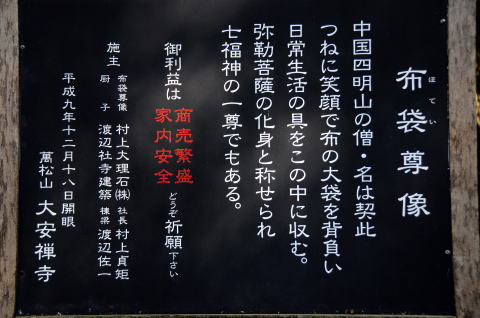 布袋尊像
ほてい
中国四明山の僧・名は契此
つねに笑顔で布の大袋を背負い
日常生活の具をこの中に収む。
弥勒菩薩の化身と称せられ
七福神の一尊でもある。
御利益は
商売繁盛
家内安全
どうぞ祈願下さい
施主
布袋尊像 村上大理石㈱ 社長 村上貞矩
厨子 渡辺社寺建築 棟梁 渡辺佐一
平成九年十二月十八日開眼
萬松山 大安禅寺